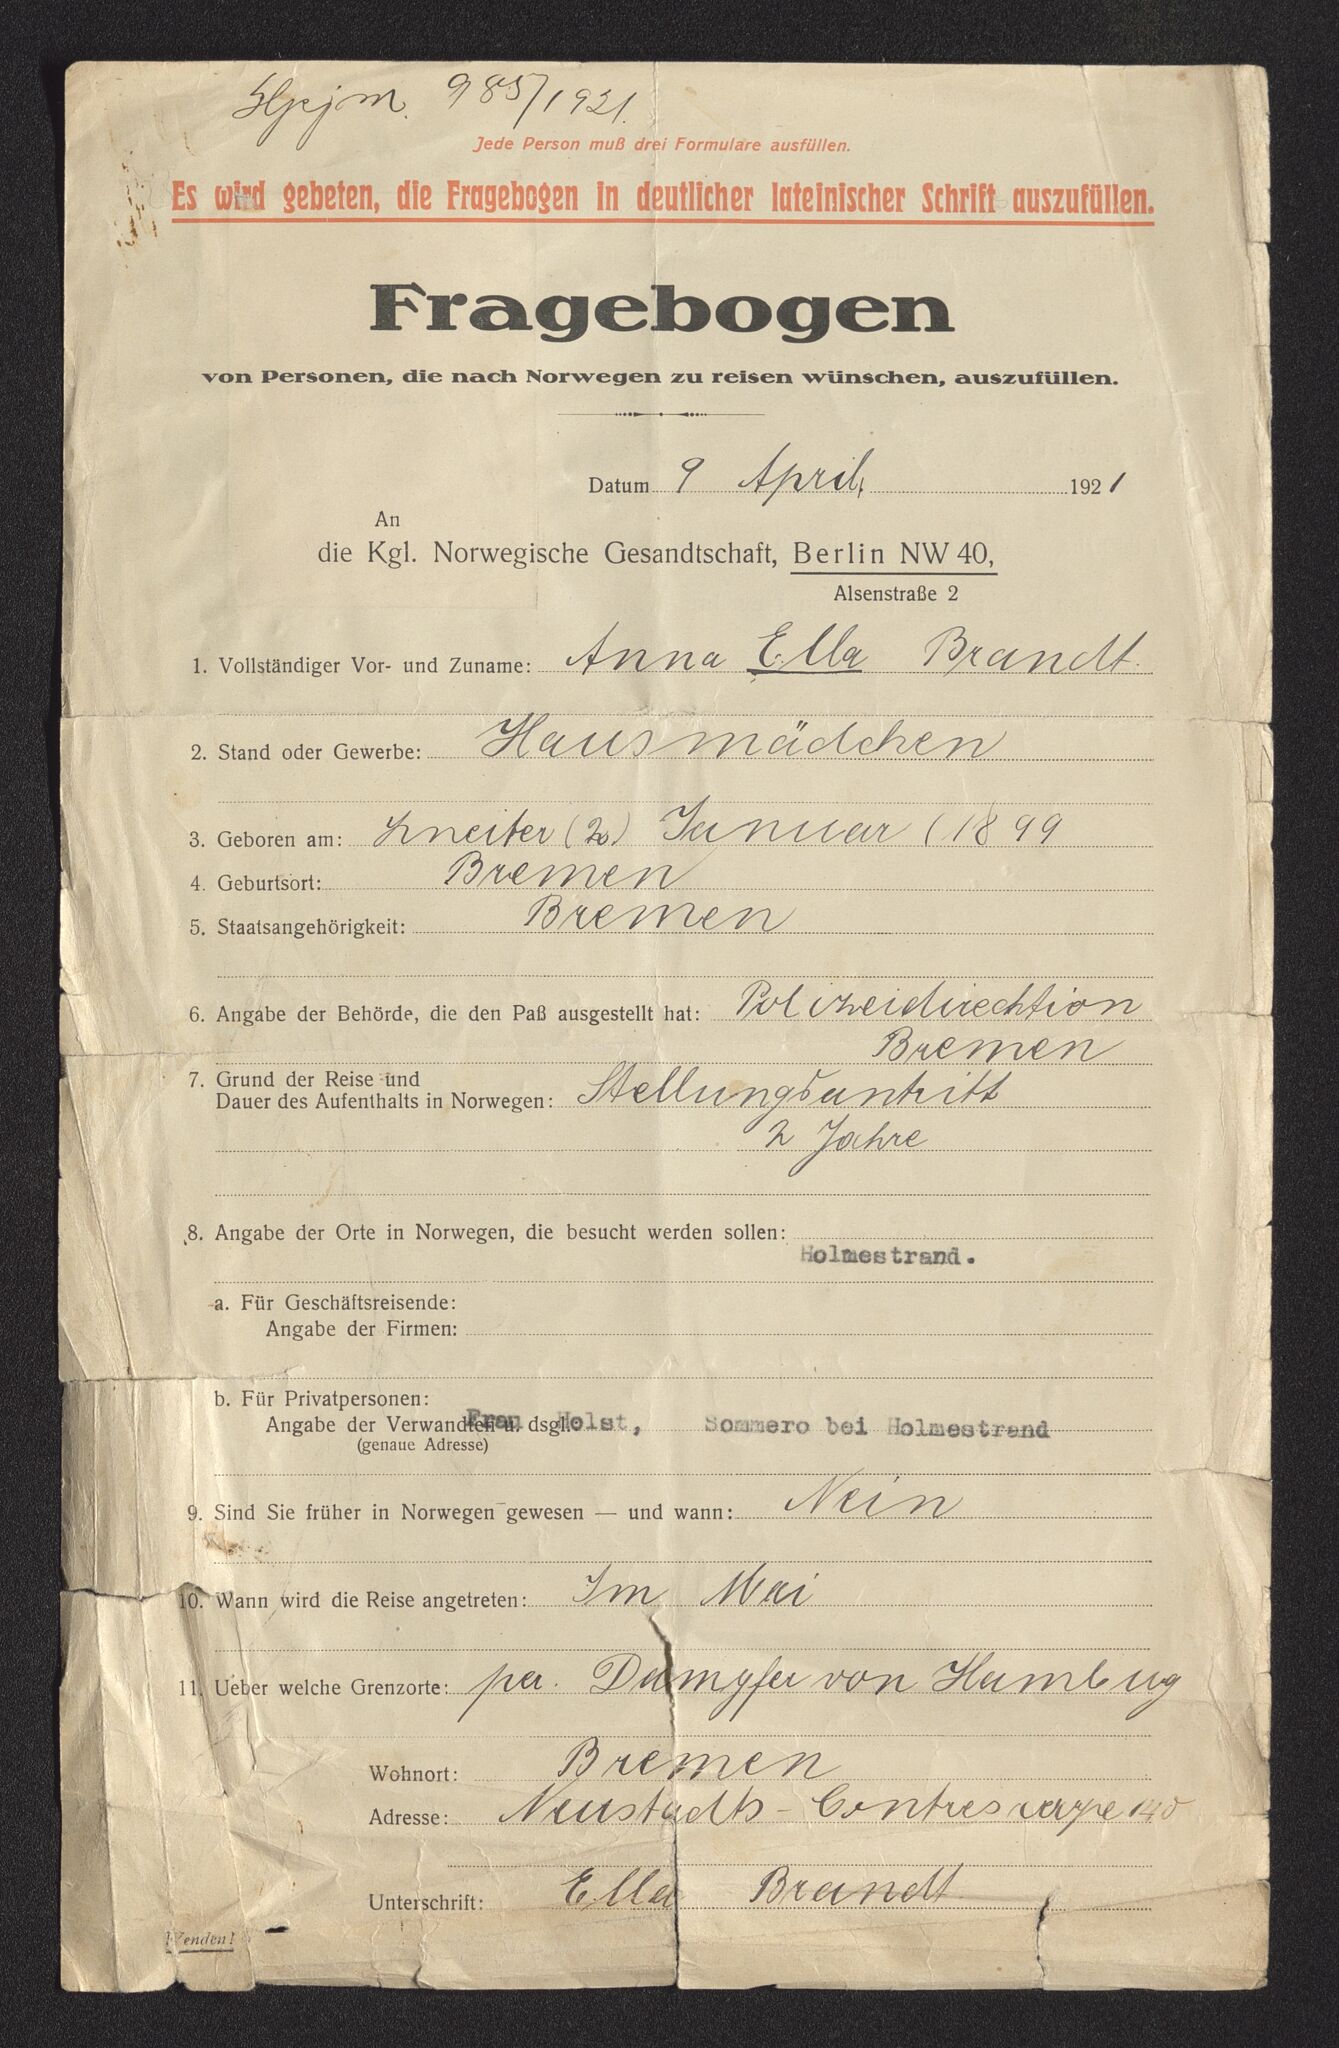 985/1921.
Jede Person muß drei Formulare ausfüllen.
Es wird gebeten, die Fragebogen in deutlicher lateinischer Schrift auszufüllen.
Fragebogen
von Personen, die nach Norwegen zu reisen wünschen, auszufüllen.
Datum 9 April, 1921
An
die Kgl. Norwegische Gesandtschaft, Berlin NW 40,
Alsenstraße 2
1. Vollständiger Vor- und Zuname: Anna Ella Brandt.
2. Stand oder Gewerbe: Hausmädchen
3. Geboren am: Zweiter (2) Januar (1899
4. Geburtsort: Bremen
5. Staatsangehörigkeit: Bremen
6. Angabe der Behörde, die den Paß ausgestellt hat: Polizeidirechtion
Bremen
7. Grund der Reise und
Dauer des Aufenthalts in Norwegen: Stellungsantritt
2 Jahre
8. Angabe der Orte in Norwegen, die besucht werden sollen:
Holmestrand.
a. Für Geschäftsreisende:
Angabe der Firmen:
b. Für Privatpersonen:
Angabe der Verwandten u. dsgl.: Frau Holst, Sommero bei Holmestrand
(genaue Adresse)
9. Sind Sie früher in Norwegen gewesen — und wann: Nein
10. Wann wird die Reise angetreten: Im Mai
11. Ueber welche Grenzorte: per. Dampfer von Hamburg
Wohnort: Bremen
Adresse: Neustadts-Contrescarpe 140
Unterschrift: Ella Brandt
Wenden!